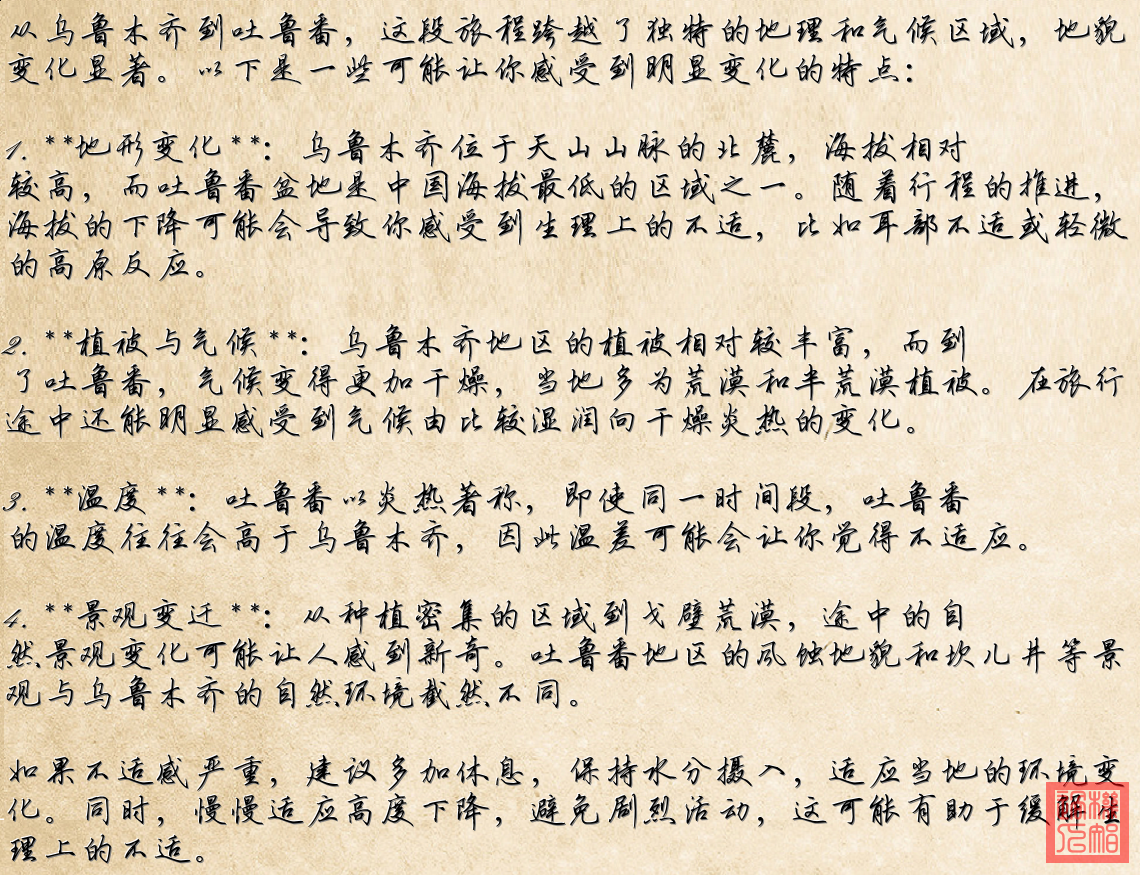 从乌鲁木齐到吐鲁番，这段旅程跨越了独特的地理和气候区域，地貌
变化显著。以下是一些可能让你感受到明显变化的特点：
1. **地形变化**：乌鲁木齐位于天山山脉的北麓，海拔相对
较高，而吐鲁番盆地是中国海拔最低的区域之一。随着行程的推进，
海拔的下降可能会导致你感受到生理上的不适，比如耳部不适或轻微
的高原反应。
2. **植被与气候**：乌鲁木齐地区的植被相对较丰富，而到
了吐鲁番，气候变得更加干燥，当地多为荒漠和半荒漠植被。在旅行
途中还能明显感受到气候由比较湿润向干燥炎热的变化。
3. **温度**：吐鲁番以炎热著称，即使同一时间段，吐鲁番
的温度往往会高于乌鲁木齐，因此温差可能会让你觉得不适应。
4. **景观变迁**：从种植密集的区域到戈壁荒漠，途中的自
然景观变化可能让人感到新奇。吐鲁番地区的风蚀地貌和坎儿井等景
观与乌鲁木齐的自然环境截然不同。
如果不适感严重，建议多加休息，保持水分摄入，适应当地的环境变
化。同时，慢慢适应高度下降，避免剧烈活动，这可能有助于缓解生
理上的不适。